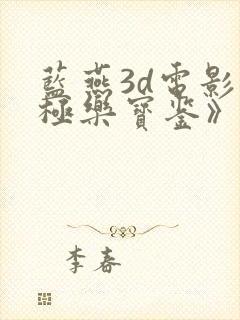 藍燕3d電影
極樂寶鑒》
李春